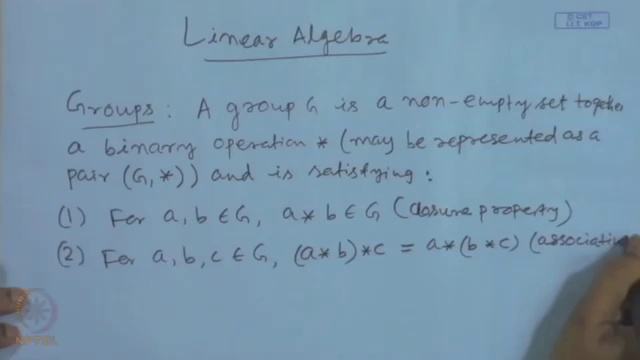 © CET
I.I.T. KGP
Linear Algebra
Groups: A group G is a non-empty set together
a binary operation * (may be represented as a
pair (G, *)) and is satisfying:
(1) For a, b ∈ G, a * b ∈ G (closure property)
(2) For a, b, c ∈ G, (a * b) * c = a * (b * c) (associativ
NPTEL